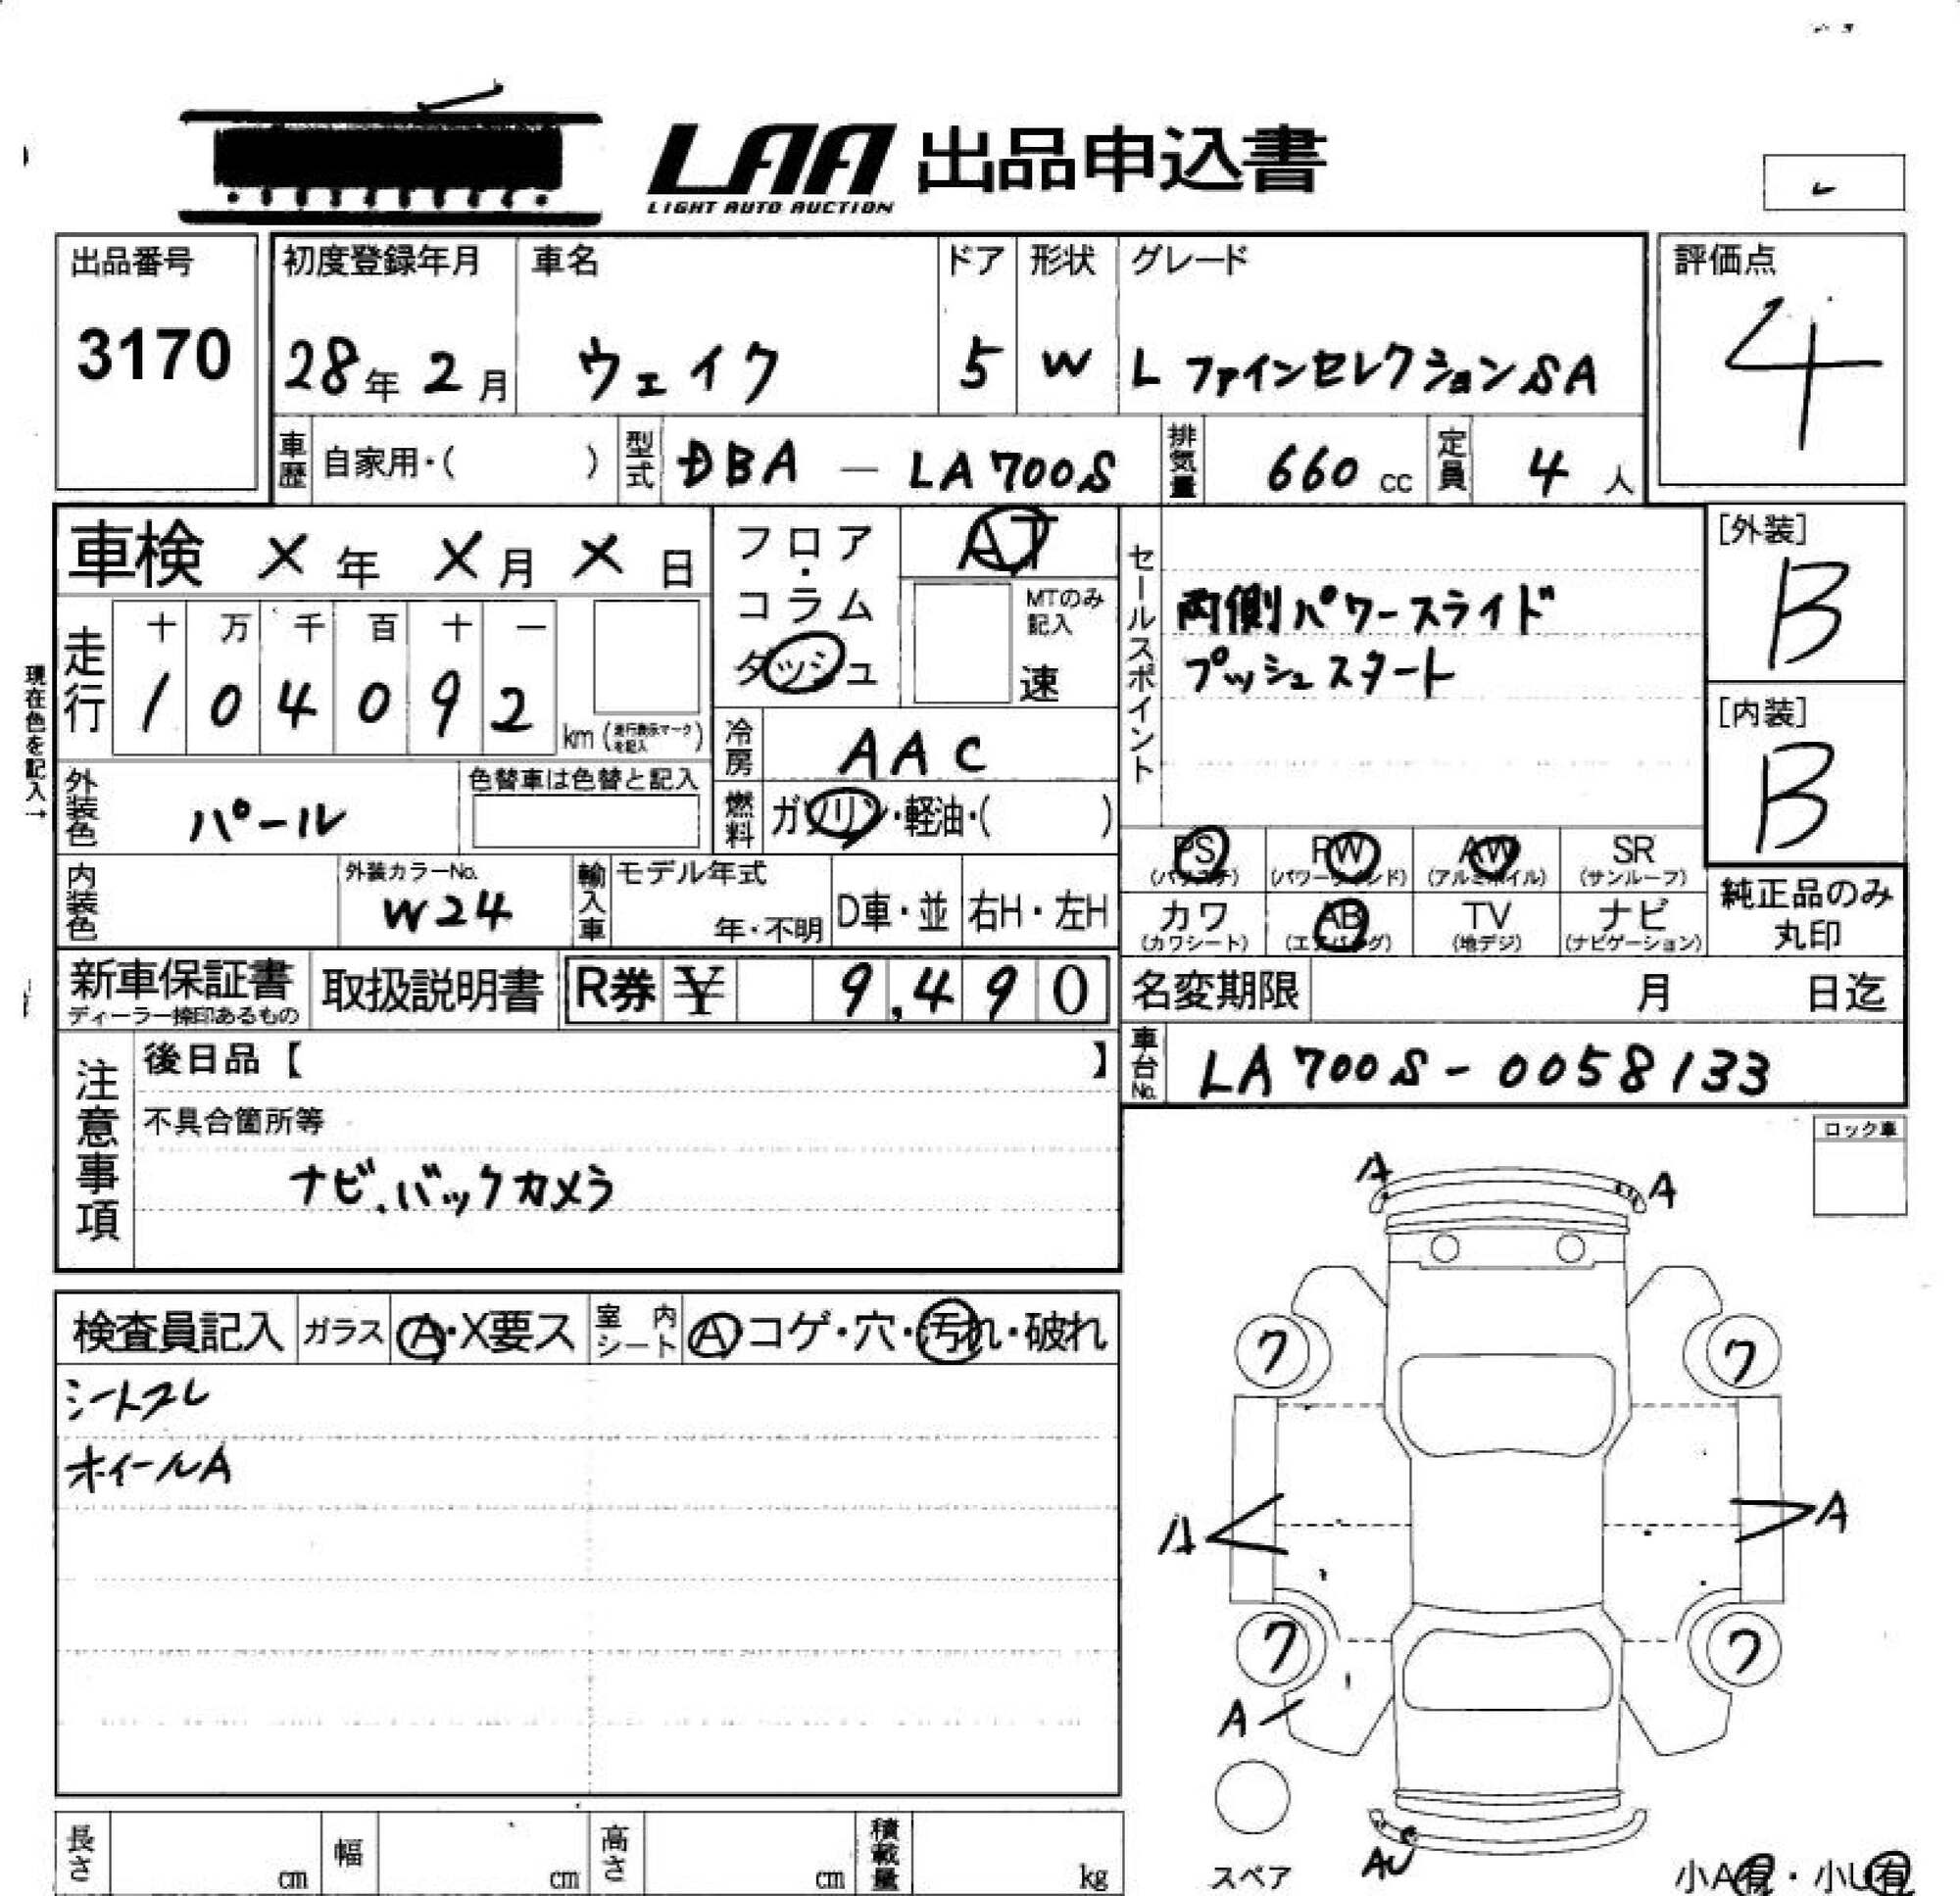 LAA 出品申込書
LIGHT AUTO AUCTION
出品番号 初度登録年月 車名 ドア 形状 グレード 評価点
3170 28年 2月 ウェイク 5 W L ファインセレクションSA 4
車歴 自家用・( ) 型式 DBA — LA700S 排気量 660 cc 定員 4 人
車検 X 年 X 月 X 日 フロア・コラム AT セールスポイント [外装]
ダッシュ MTのみ記入 速 両側パワースライド B
走行 十 万 千 百 十 一 プッシュスタート
1 0 4 0 9 2 km (走行表示マークを記入) [内装]
現在色を記入→ 冷房 AAC B
外装色 パール 色替車は色替と記入 燃料 ガソリン・軽油・( )
PS (パワステ) PW (パワーウィンド) AW (アルミホイル) SR (サンルーフ)
内装色 外装カラーNo. W24 輸入車 モデル年式 年・不明 D車・並 右H・左H
カワ (カワシート) AB (エアバッグ) TV (地デジ) ナビ (ナビゲーション) 純正品のみ丸印
新車保証書 ディーラー捺印あるもの 取扱説明書 R券 ¥ 9,490 名変期限 月 日迄
注意事項 後日品【 】 車台No. LA700S-0058133
不具合箇所等 ロック車
ナビ、バックカメラ
A A
検査員記入 ガラス A・X要ス 室内シート A コゲ・穴・汚れ・破れ
ワ ワ
シートスレ
ホイールA
A A
ワ ワ
A
AU
スペア
長さ cm 幅 cm 高さ cm 積載量 kg
小A有・小U有